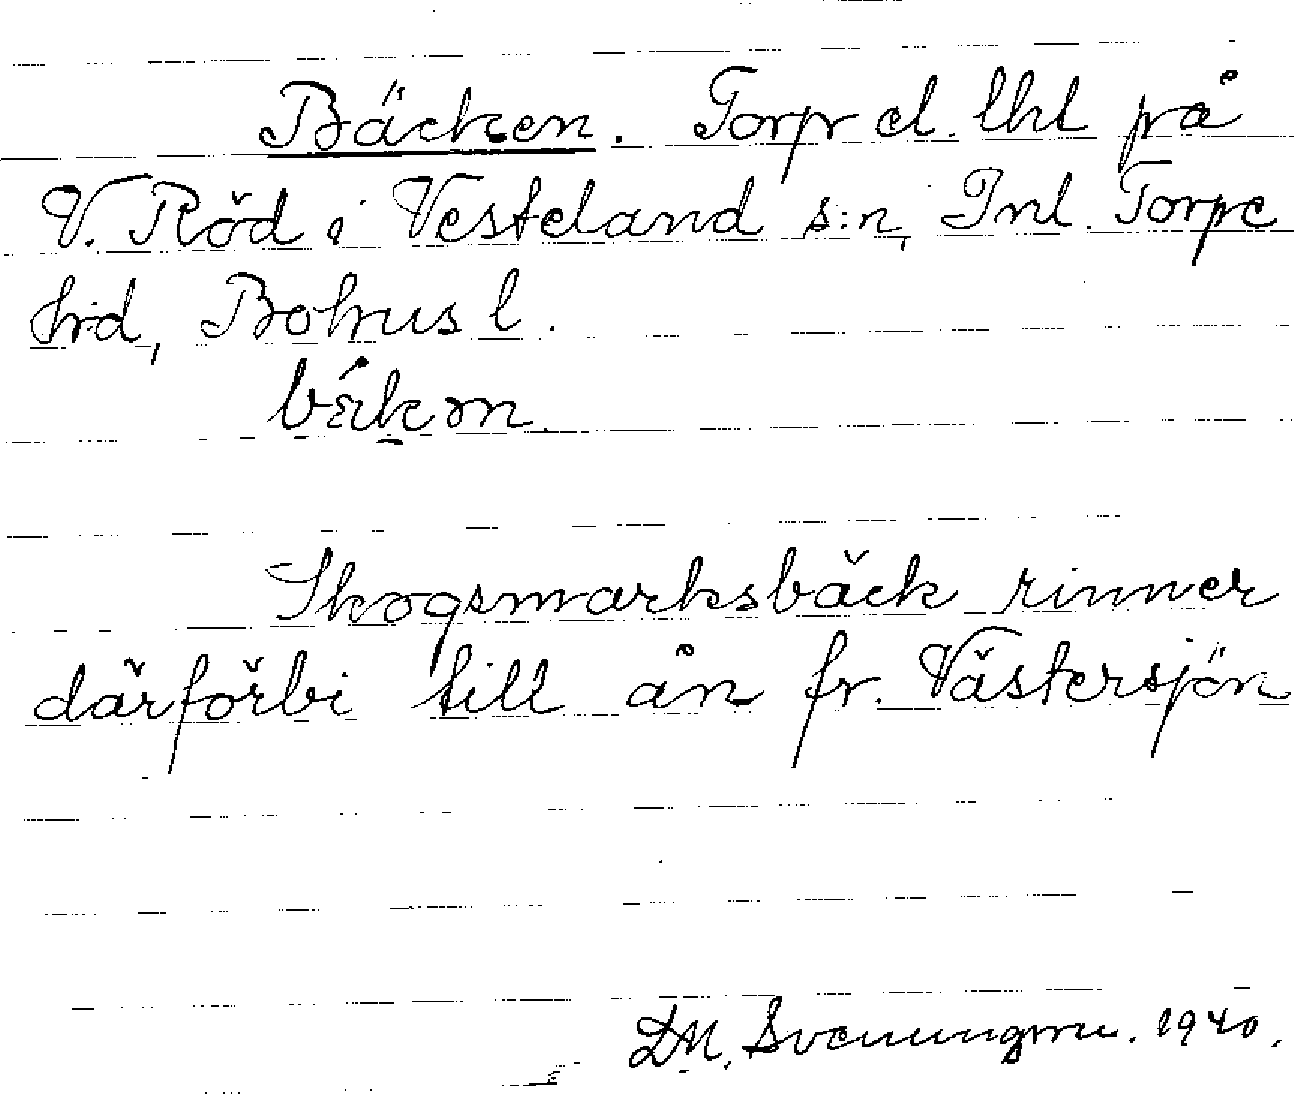 Bäcken. Torp el. lht på
V. Röd i Vesteland s:n, Inl. Torpe
hrd, Bohus l.
Skogsmarksbäck rinner
därförbi till ån fr. Västersjön
D.M. Svenungsson. 1940.